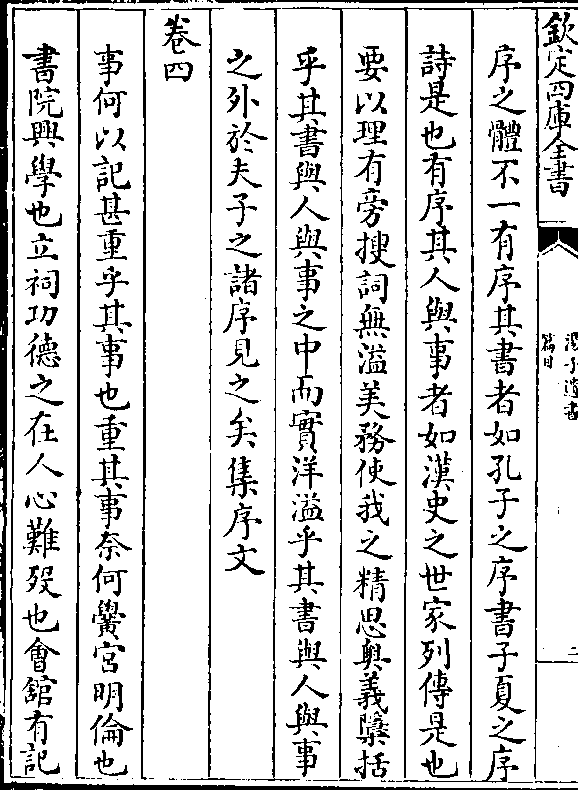 欽定四庫全書
篇目
二
序之體不一有序其書者如孔子之序書子夏之序
詩是也有序其人與事者如漢史之世家列傳是也
要以理有旁搜詞無溢美務使我之精思奥義櫽括
乎其書與人與事之中而實洋溢乎其書與人與事
之外於夫子之諸序見之矣集序文
卷四
事何以記甚重乎其事也重其事奈何黌宫明倫也
書院興學也立祠功德之在人心難殁也會舘有記